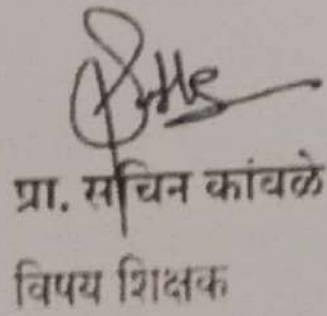 प्रा. सचिन कांबळे
विषय शिक्षक